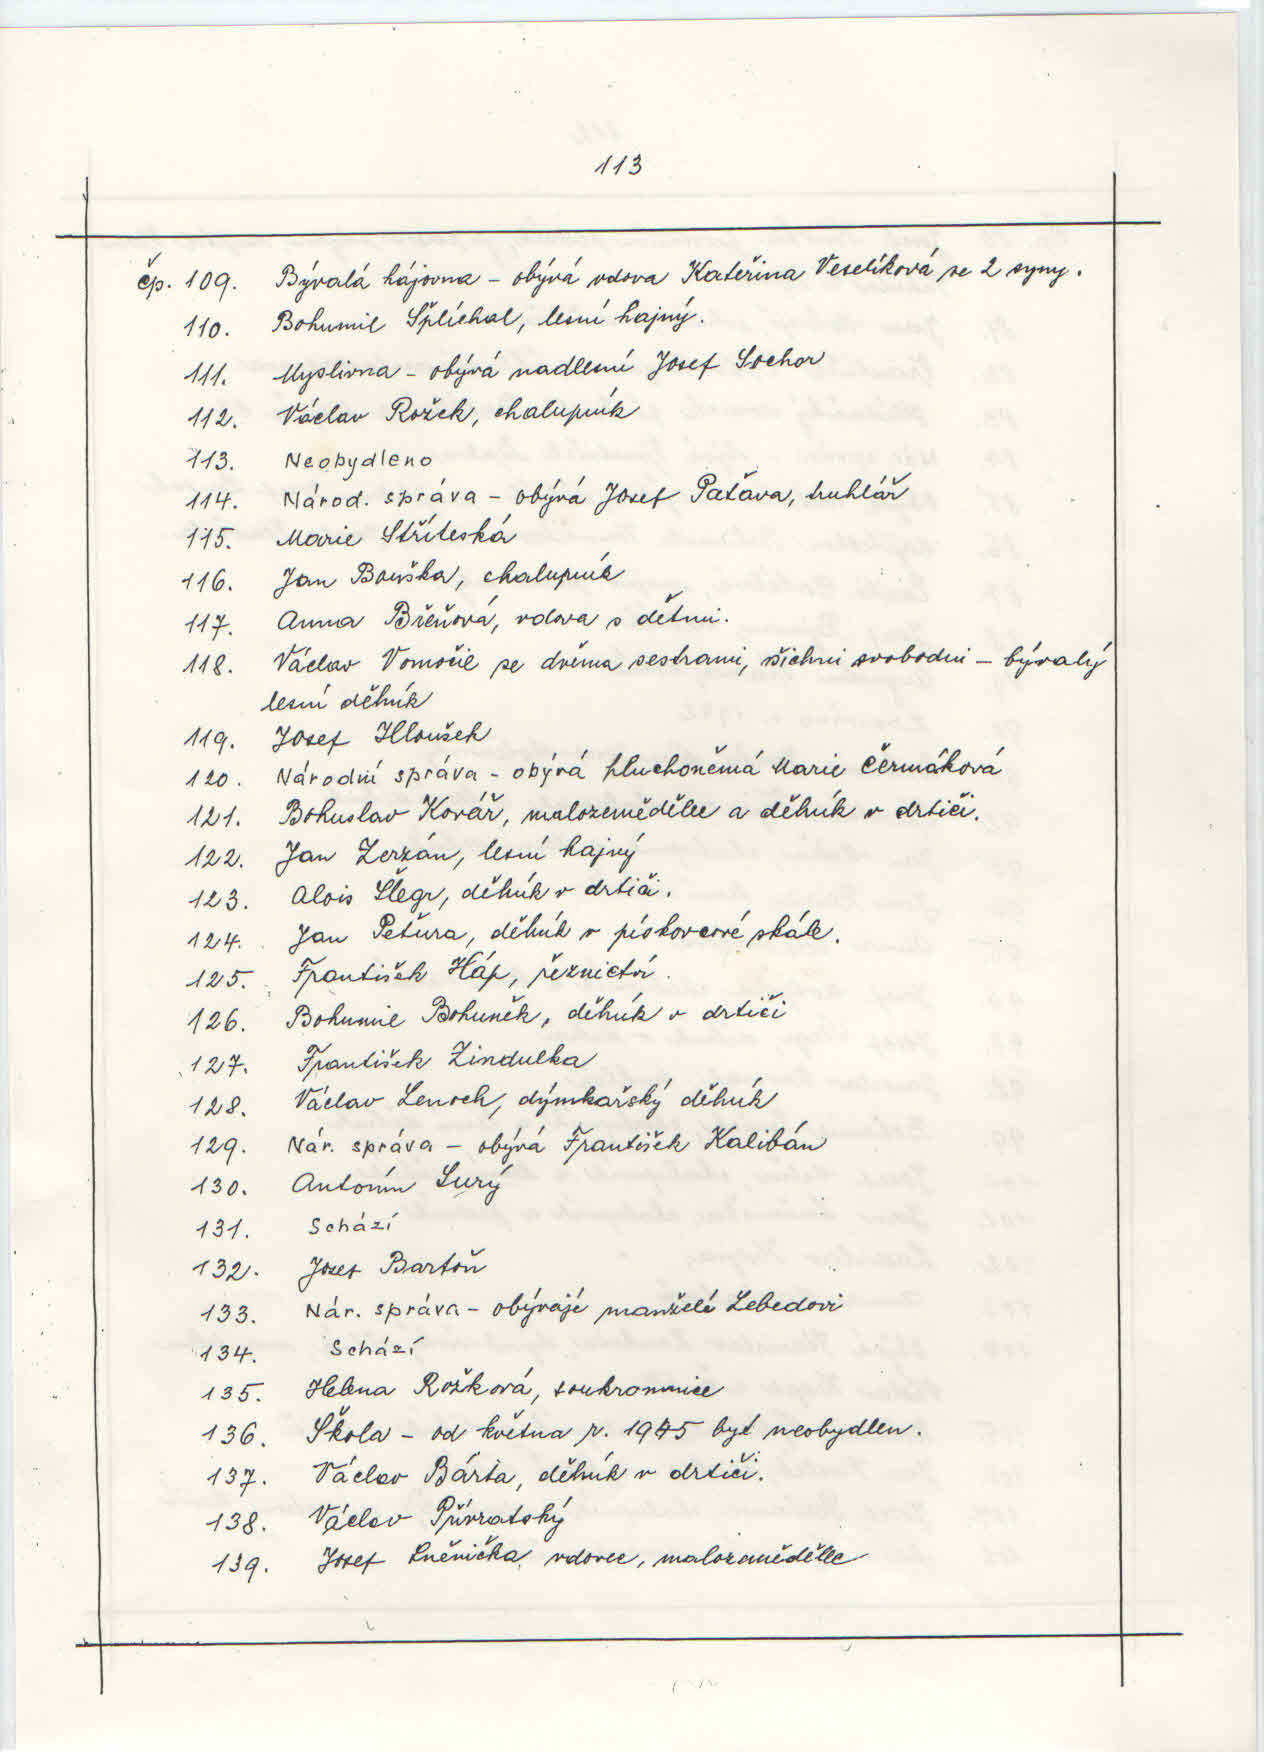 113
čp. 109. Bývalá hájovna – obývá vdova Kateřina Veselíková se 2 syny.
110. Bohumil Šplíchal, lesní hajný.
111. Myslivna – obývá nadlesní Josef Sochor
112. Václav Rožek, chalupník
113. Neobydleno
114. Národ. správa – obývá Josef Paťava, truhlář
115. Marie Stříteská
116. Jan Bouška, chalupník
117. Anna Břeňová, vdova s dětmi.
118. Václav Vomočil se dvěma sestrami, všichni svobodni – bývalý
lesní dělník
119. Josef Hloušek
120. Národní správa – obývá hluchoněmá Marie Čermáková
121. Bohuslav Kovář, malozemědělec a dělník v drtiči.
122. Jan Zerzán, lesní hajný
123. Alois Šlegr, dělník v drtiči.
124. Jan Peťura, dělník v pískovcové skále.
125. František Háp, řeznictví.
126. Bohumil Bohuněk, dělník v drtiči
127. František Zindulka
128. Václav Lenoch, dýmkařský dělník
129. Nár. správa – obývá František Kalibán
130. Antonín Surý
131. Schází
132. Josef Bartoň
133. Nár. správa – obývají manželé Lebedovi
134. Schází
135. Helena Rožková, soukromnice
136. Škola – od května r. 1945 byt neobydlen.
137. Václav Bárta, dělník v drtiči.
138. Václav Přívratský
139. Josef Lněnička, vdovec, malozemědělec